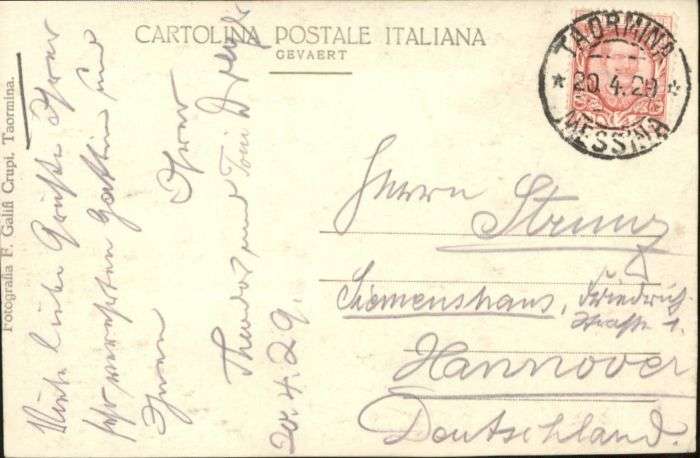 CARTOLINA POSTALE ITALIANA
GEVAERT
TAORMINA
20.4.29
MESSINA
Fotografia F. Galifi Crupi, Taormina.
liebe Grüße Ihrer
sehr verehrten Gattin und
Ihnen
Ihrer
Theodor und Toni
20.4.29.
Herrn
Strunz
Siemenshaus, Friedrich
straße 1.
Hannover
Deutschland.